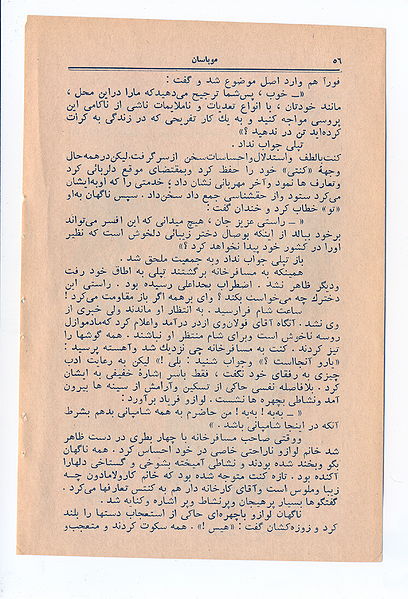 ۵۶
موپاسان
فوراً هم وارد اصل موضوع شد و گفت :
«ــ خوب ، پس شما ترجیح می‌دهید که مارا دراین محل ،
مانند خودتان ، با انواع تعدیات و ناملایمات ناشی از ناکامی این
پروسی مواجه کنید و به یك کار تفریحی که در زندگی به کرات
کرده‌اید تن در ندهید ؟»
تپلی جواب نداد .
کنت بالطف واستدلال واحساسات سخن ازسر گرفت. لیکن درهمه حال
وجههٔ «کنتی» خود را حفظ کرد وبمقتضای موقع دلربائی کرد
وتعارف‌ها نمود وآخر مهربانی نشان داد ، خدمتی را که اوبه ایشان
می‌کرد ستود واز حقشناسی جمع داد سخن‌داد . سپس ناگهان به‌او
«تو» خطاب کرد و خندان گفت :
«ــ راستی عزیز جان ، هیچ میدانی که این افسر می‌تواند
برخود ببالد از اینکه بوصال دختر زیبائی دلخوش است که نظیر
اورا در کشور خود پیدا نخواهد کرد ؟»
باز تپلی جواب نداد وبه جمعیت ملحق شد .
همینکه به مسافرخانه برگشتند تپلی به اطاق خود رفت
ودیگر ظاهر نشد . اضطراب بحداعلی رسیده بود . راستی این
دخترك چه می‌خواست بکند ؟ وای برهمه اگر باز مقاومت می‌کرد !
ساعت شام فرارسید . به انتظار او ماندند ولی خبری از
وی نشد . آنگاه آقای فولان‌وی ازدر درآمد واعلام کرد که مادموازل
روسه ناخوش است وبرای شام منتظر او نباشند . همه گوشها را
تیز کردند . کنت به مسافرخانه چی نزدیك شد وآهسته پرسید :
«یارو آنجااست ؟» وجواب شنید : بلی !» لیکن به رعایت ادب
چیزی به رفقای خود نگفت ، فقط باسر اشارهٔ خفیفی به ایشان
کرد . بلافاصله نفسی حاکی از تسکین وآرامش از سینه ها بیرون
آمد ونشاطی بچهره ها نشست . لوازو فریاد برآورد :
«ــ به به ! به به ! من حاضرم به همه شامپانی بدهم بشرط
آنکه در اینجا شامپانی باشد . »
ووقتی صاحب مسافرخانه با چهار بطری در دست ظاهر
شد خانم لوازو ناراحتی خاصی در خود احساس کرد . همه ناگهان
بگو وبخند شده بودند و نشاطی آمیخته بشوخی و گستاخی دلهارا
آکنده بود . تازه کنت متوجه شده بود که خانم کاره‌لامادون چه
زیبا وملوس است وآقای کارخانه دار هم به کنتس تعارفها می‌کرد .
گفتگوها بسیار پرهیجان وپرنشاط وپر اشاره وکنایه شد .
ناگهان لوازو باچهره‌ای حاکی از استعجاب دستها را بلند
کرد و زوزه‌کشان گفت : «هیس !» . همه سکوت کردند و متعجب و